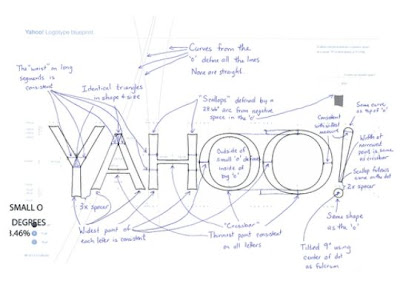 Yahoo! Logotype blueprint
Curves from the
'o' define all the lines
None are straight
The "waist" on long
segments is
consistent
Identical triangles
in shape + size
"Scallops" defined by a
arc from negative
space in the
Same curve
as top of 'o'
Consistent
with
YAHOO!
Outside of
small 'o' defines
inside of
big 'o'
Width at
narrowest
point is same
as crossbar
Scallop follows
curve on the dot
2x spacer
SMALL O
DEGREES
3.46%
3x spacer
Widest point of
each letter is consistent
"Crossbar"
Thinnest point consistent
on all letters
Same shape
as the "o"
Tilted 9° using
center of dot
as fulcrum